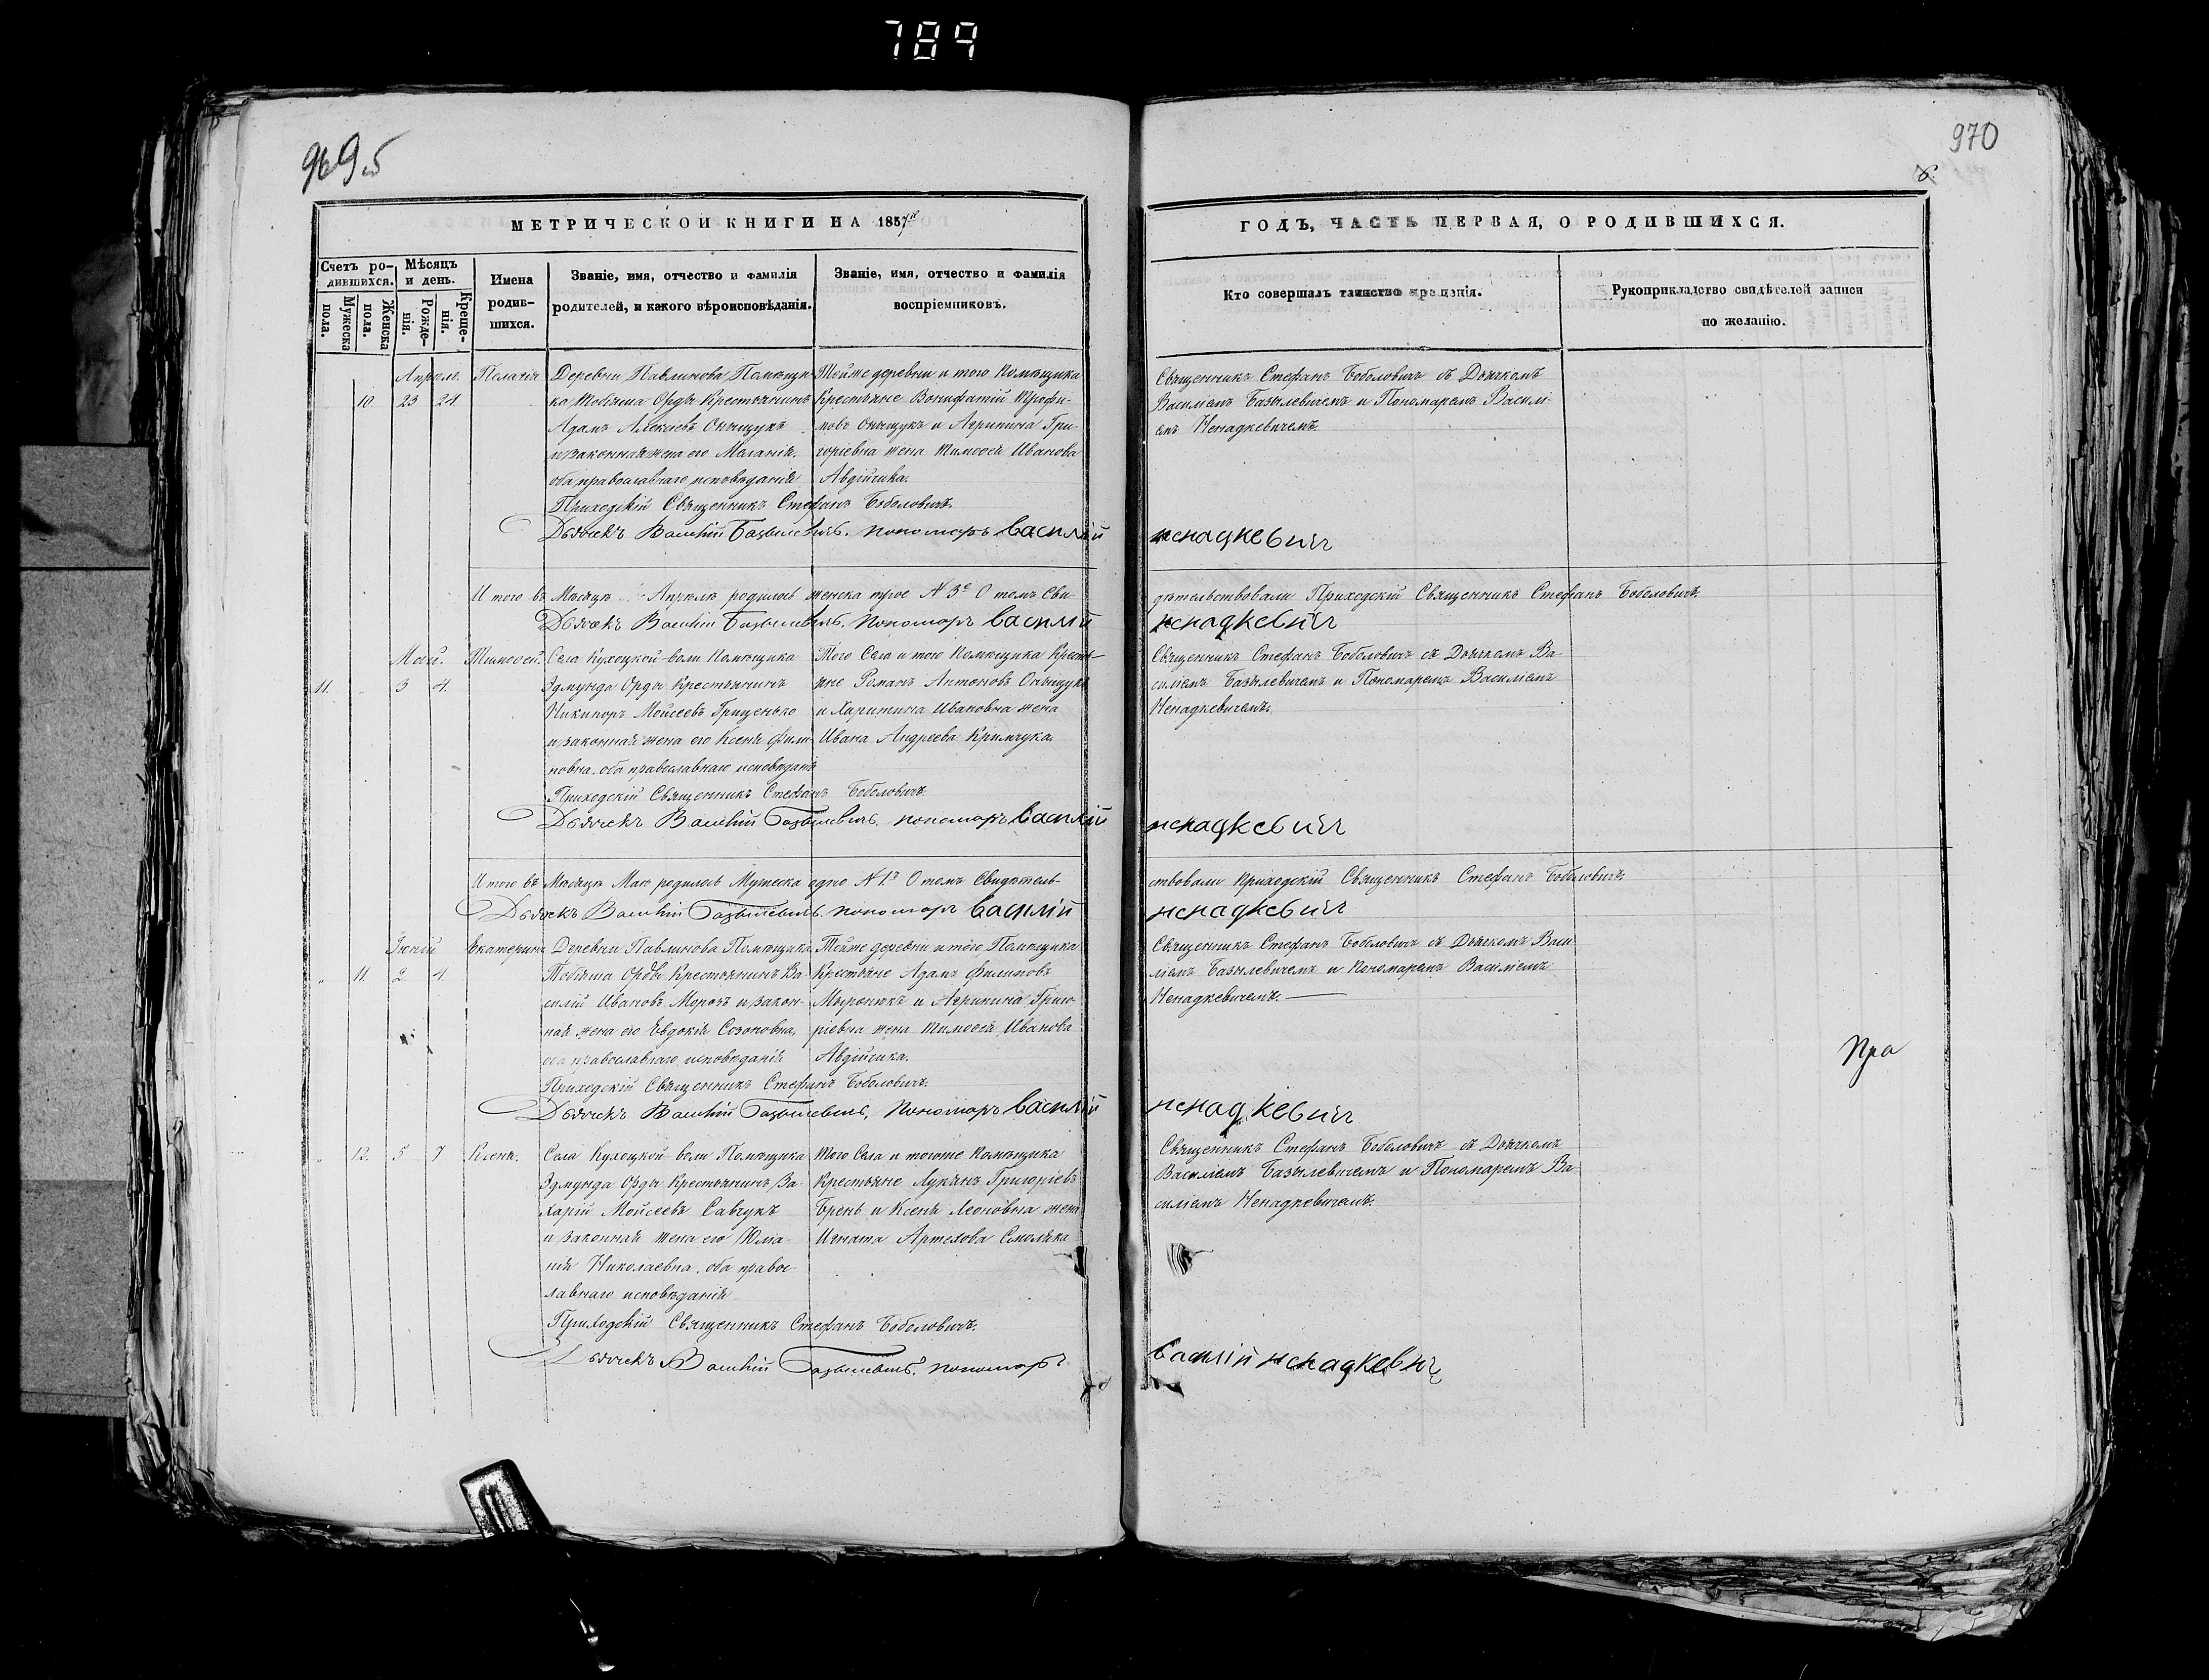 789
969
5
970
6.
МЕТРИЧЕСКОЙ КНИГИ НА 1857й
ГОДЪ, ЧАСТЬ ПЕРВАЯ, О РОДИВШИХСЯ.
Счетъ ро-
дившихся.
Мужеска
пола.
Женска
пола.
Мѣсяцъ
и день.
Рожде-
нія.
Креще-
нія.
Имена
родив-
шихся.
Званіе, имя, отчество и фамилія
родителей, и какого вѣроисповѣданія.
Званіе, имя, отчество и фамилія
воспріемниковъ.
Кто совершалъ таинство крещенія.
Рукоприкладство свидѣтелей записи
по желанію.
Апрѣль.
10. 23 24
Пелагія
Деревни Павлинова Помѣщи-
ка Тобіяша Орды Крестьянинъ
Адамъ Алексѣевъ Онищукъ
и законная жена его Меланія,
оба православнаго исповѣданія
Тойже деревни и того Помѣщика
Крестьяне Вонифатій Трофи-
мовъ Онищукъ и Агрипина Гри-
горіевна жена Тимоѳея Иванова
Авдійчика.
Священникъ Стефанъ Боболовичъ съ Дьячкомъ
Василіемъ Базылевичемъ и Пономаремъ Василі-
емъ Ненадкевичемъ.
Приходскій Священникъ Стефанъ Боболовичъ.
Дьячекъ Василій Базылевичъ. пономарь Василій ненадкевичъ
И того въ Мѣсяцѣ Апрѣлѣ родилось женска трое №3. О томъ Сви-
дѣтельствовали Приходскій Священникъ Стефанъ Боболовичъ.
Дьячекъ Василій Базылевичъ. пономарь Василій ненадкевичъ
Май.
11. 3 4.
Тимоѳей.
Села Кухоцкой-воли Помѣщика
Эдмунда Орды Крестьянинъ
Никипоръ Мойсеевъ Гриценько
и законная жена его Ксенія Фили-
повна. оба православнаго исповѣданія
Того Села и того Помѣщика Кресть-
яне Романъ Антоновъ Онищукъ
и Харитина Ивановна жена
Ивана Андреева Кримчука.
Священникъ Стефанъ Боболовичъ съ Дьячкомъ Ва-
силіемъ Базылевичемъ и Пономаремъ Василіемъ
Ненадкевичемъ.
Приходскій Священникъ Стефанъ Боболовичъ
Дьячекъ Василій Базылевичъ. пономарь Василій ненадкевичъ
И того въ Мѣсяцѣ Маѣ родилось Мужеска одно №1. О томъ Свидѣтель-
ствовали приходскій Священникъ Стефанъ Боболовичъ.
Дьячекъ Василій Базылевичъ. пономарь Василій ненадкевичъ
Іюній
" 11. 2. 4.
Екатерина
Деревни Павлинова Помѣщика
Тобіяша Орды Крестьянинъ Ва-
силій Ивановъ Морозъ и закон-
ная жена его Евдокія Созоновна,
оба православнаго исповѣданія
Тойже деревни и того Помѣщика
Крестьяне Адамъ Филиповъ
Миронюкъ и Агрипина Григо-
ріевна жена Тимоѳея Иванова
Авдійчика.
Священникъ Стефанъ Боболовичъ съ Дьячкомъ Васи-
ліемъ Базылевичемъ и Пономаремъ Василіемъ
Ненадкевичемъ.
Пра
Приходскій Священникъ Стефанъ Боболовичъ.
Дьячекъ Василій Базылевичъ. пономарь Василій ненадкевичъ
" 12. 5 7
Ксенія.
Села Кухоцкой-воли Помѣщика
Эдмунда Орды Крестьянинъ За-
харій Мойсеевъ Савчукъ
и законная жена его Юлиа-
нія Николаевна. оба право-
славнаго исповѣданія
Того Села и тогоже Помѣщика
Крестьяне Лукянъ Григоріевъ
Брень и Ксенія Леоновна жена
Игната Артемова Смоляка
Священникъ Стефанъ Боболовичъ съ Дьячкомъ
Василіемъ Базылевичемъ и Пономаремъ Ва-
силіемъ Ненадкевичемъ.
Приходскій Священникъ Стефанъ Боболовичъ.
Дьячекъ Василій Базылевичъ. пономарь Василій ненадкевичъ